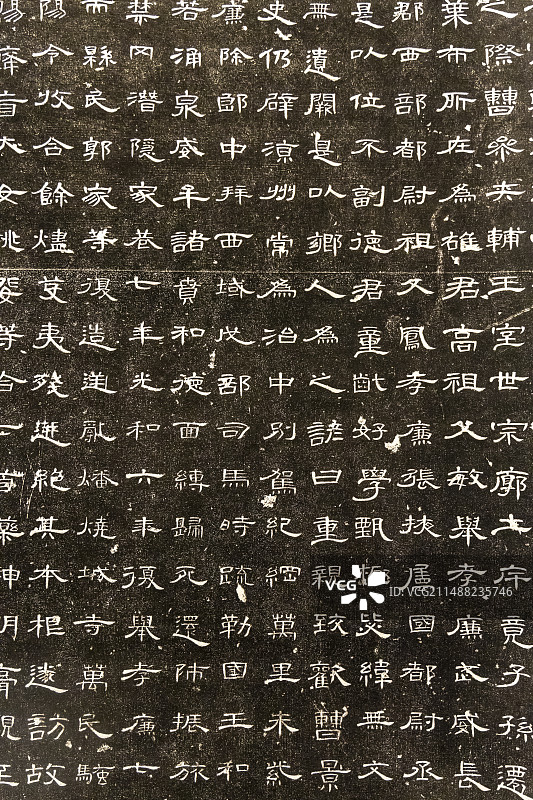 之際曹參夾輔王室世宗廓土斥竟子孫遷
葉布所在為雄君高祖父敏舉孝廉武威長
郡西部都尉祖父鳳孝廉張掖屬國都尉丞
是以位不副德君童齔好學甄極毖緯無文
無遺闕是以鄉人為之諺曰重親致歡曹景
史仍辟涼州常為治中別駕紀綱萬里朱紫
廉除郎中拜西域戊部司馬時疏勒國王和
若涌泉威牟諸賁和德面縛歸死還師振旅
禁冈潛隱家巷七年光和六年復舉孝廉七
而縣民郭家等復造逆亂燔燒城寺萬民騷
陽令收合餘燼芟夷殘迸絕其本根遂訪故
癃盲大女桃婓等合七首藥神明膏親至
VCG
ID:VCG211488235746